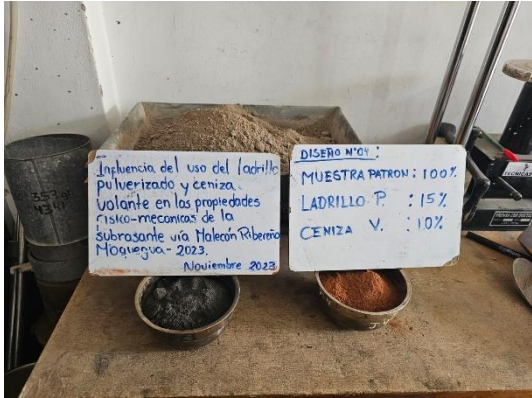 Influencia del uso del ladrillo
pulverizado y ceniza
volante en las propiedades
fisiko-mecanicas de la
subrasante vía Malecón Ribereño
Moquegua - 2023.
Noviembre 2023
DISEÑO N°04:
MUESTRA PATRON: 100%
LADRILLO P. : 15%
CENIZA V. : 10%
TECNICAS